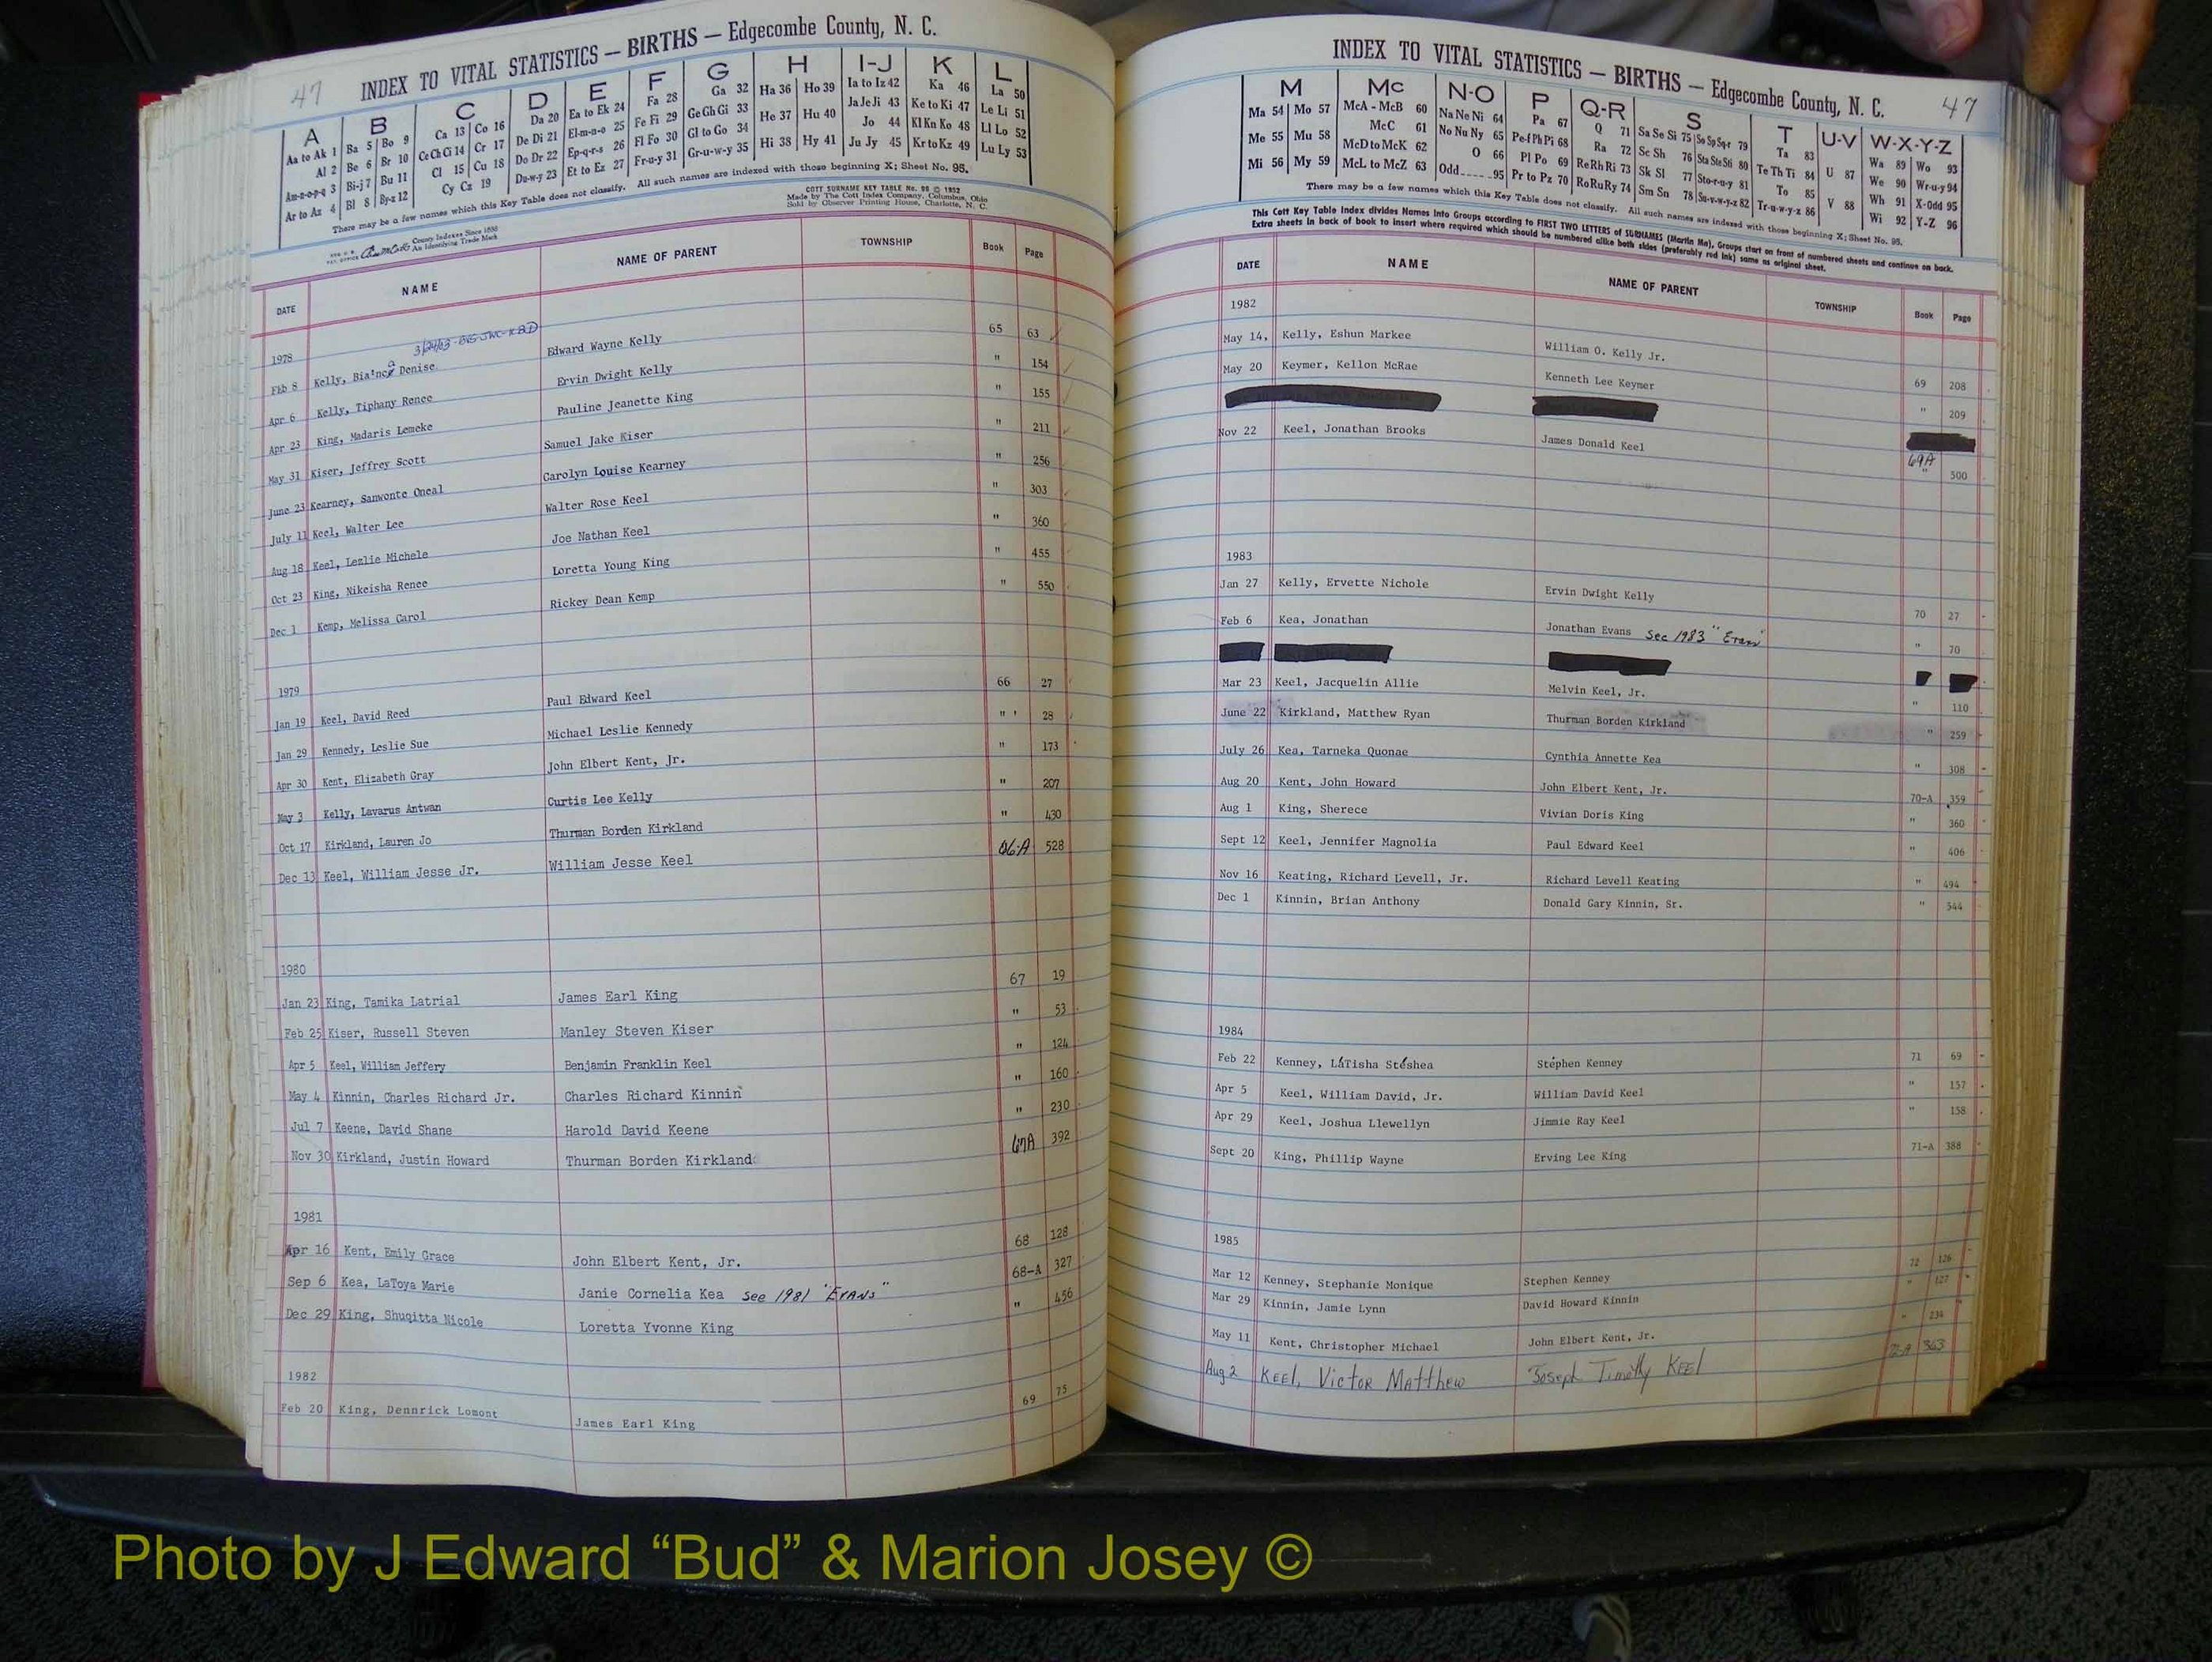 47 INDEX TO VITAL STATISTICS — BIRTHS — Edgecombe County, N. C.
A B C D E F G H I-J K L
Aa to Ak 1 Ba 5 Bo 9 Ca 13 Co 16 Da 20 Ea to Ek 24 Fa 28 Ga 32 Ha 36 Ho 39 Ia to Iz 42 Ka 46 La 50
Al 2 Be 6 Br 10 Ce Ch Ci 14 Cr 17 De Di 21 El-m-n-o 25 Fe Fi 29 Ge Gh Gi 33 He 37 Hu 40 Ja Je Ji 43 Ke to Ki 47 Le Li 51
Am-n-o-p-q 3 Bi-j 7 Bu 11 Cl 15 Cu 18 Do Dr 22 Ep-q-r-s 26 Fl Fo 30 Gl to Go 34 Hi 38 Hy 41 Jo 44 Kl Kn Ko 48 Ll Lo 52
Ar to Az 4 Bl 8 By-z 12 Cy Cz 19 Du-w-y 23 Et to Ez 27 Fr-u-y 31 Gr-u-w-y 35 Ju Jy 45 Kr to Kz 49 Lu Ly 53
There may be a few names which this Key Table does not classify. All such names are indexed with those beginning X; Sheet No. 95.
COTT SURNAME KEY TABLE No. 96 © 1952
Made by The Cott Index Company, Columbus, Ohio
Sold by Observer Printing House, Charlotte, N. C.
County Indexes Since 1890
An Identifying Trade Mark
DATE NAME NAME OF PARENT TOWNSHIP Book Page
1978
Feb 8 Kelly, Denise Edward Wayne Kelly 65 63
Apr 6 Kelly, Tiphany Renee Ervin Dwight Kelly " 154
Apr 23 King, Madaris Lemeke Pauline Jeanette King " 155
May 31 Kiser, Jeffrey Scott Samuel Jake Kiser " 211
June 23 Kearney, Samwonte Oneal Carolyn Louise Kearney " 256
July 11 Keel, Walter Lee Walter Rose Keel " 303
Aug 18 Keel, Lezlie Michele Joe Nathan Keel " 360
Oct 23 King, Nikeisha Renee Loretta Young King " 455
Dec 1 Kemp, Melissa Carol Rickey Dean Kemp " 550
1979
Jan 19 Keel, David Reed Paul Edward Keel 66 27
Jan 29 Kennedy, Leslie Sue Michael Leslie Kennedy " 28
Apr 30 Kent, Elizabeth Gray John Elbert Kent, Jr. " 173
May 3 Kelly, Lavarus Antwan Curtis Lee Kelly " 207
Oct 17 Kirkland, Lauren Jo Thurman Borden Kirkland " 430
Dec 13 Keel, William Jesse Jr. William Jesse Keel 66-A 528
1980
Jan 23 King, Tamika Latrial James Earl King 67 19
Feb 25 Kiser, Russell Steven Manley Steven Kiser " 53
Apr 5 Keel, William Jeffery Benjamin Franklin Keel " 124
May 4 Kinnin, Charles Richard Jr. Charles Richard Kinnin " 160
Jul 7 Keene, David Shane Harold David Keene " 230
Nov 30 Kirkland, Justin Howard Thurman Borden Kirkland 67A 392
1981
Apr 16 Kent, Emily Grace John Elbert Kent, Jr. 68 128
Sep 6 Kea, LaToya Marie Janie Cornelia Kea see 1981 "EVANS" 68-A 327
Dec 29 King, Shuqitta Nicole Loretta Yvonne King " 456
1982
Feb 20 King, Dennrick Lomont James Earl King 69 75
INDEX TO VITAL STATISTICS — BIRTHS — Edgecombe County, N. C. 47
M Mc N-O P Q-R S T U-V W-X-Y-Z
Ma 54 Mo 57 McA - McB 60 Na Ne Ni 64 Pa 67 Q 71 Sa Se Si 75 So Sp Sq-r 79 Ta 83 U 87 Wa 89 Wo 93
Me 55 Mu 58 McC 61 No Nu Ny 65 Pe-f Ph Pi 68 Ra 72 Sc Sh 76 Sta Ste Sti 80 Te Th Ti 84 V 88 We 90 Wr-u-y 94
Mi 56 My 59 McD to McK 62 O 66 Pl Po 69 Re Rh Ri 73 Sk Sl 77 Sto-r-u-y 81 To 85 Wh 91 X-Odd 95
McL to McZ 63 Odd 95 Pr to Pz 70 Ro Ru Ry 74 Sm Sn 78 Su-v-w-y-z 82 Tr-u-w-y-z 86 Wi 92 Y-Z 96
There may be a few names which this Key Table does not classify. All such names are indexed with those beginning X; Sheet No. 95.
This Cott Key Table Index divides Names into Groups according to FIRST TWO LETTERS of SURNAMES (Martin Ma), Groups start on front of numbered sheets and continue on back.
Extra sheets in back of book to insert where required which should be numbered alike both sides (preferably red ink) same as original sheet.
DATE NAME NAME OF PARENT TOWNSHIP Book Page
1982
May 14, Kelly, Eshun Markee William O. Kelly Jr. 69 208
May 20 Keymer, Kellon McRae Kenneth Lee Keymer " 209
Nov 22 Keel, Jonathan Brooks James Donald Keel 69A " 500
1983
Jan 27 Kelly, Ervette Nichole Ervin Dwight Kelly 70 27
Feb 6 Kea, Jonathan Jonathan Evans See 1983 "Evans" " 70
Mar 23 Keel, Jacquelin Allie Melvin Keel, Jr. " 110
June 22 Kirkland, Matthew Ryan Thurman Borden Kirkland " 259
July 26 Kea, Tarneka Quonae Cynthia Annette Kea " 308
Aug 20 Kent, John Howard John Elbert Kent, Jr. 70-A 359
Aug 1 King, Sherece Vivian Doris King " 360
Sept 12 Keel, Jennifer Magnolia Paul Edward Keel " 406
Nov 16 Keating, Richard Levell, Jr. Richard Levell Keating " 494
Dec 1 Kinnin, Brian Anthony Donald Gary Kinnin, Sr. " 544
1984
Feb 22 Kenney, LáTisha Stéshea Stephen Kenney 71 69
Apr 5 Keel, William David, Jr. William David Keel " 157
Apr 29 Keel, Joshua Llewellyn Jimmie Ray Keel " 158
Sept 20 King, Phillip Wayne Erving Lee King 71-A 388
1985
Mar 12 Kenney, Stephanie Monique Stephen Kenney 72 126
Mar 29 Kinnin, Jamie Lynn David Howard Kinnin " 127
May 11 Kent, Christopher Michael John Elbert Kent, Jr. " 234
Aug 2 KEEl, Victor Matthew Joseph Timothy KEEl 72-A 363
Photo by J Edward “Bud” & Marion Josey ©